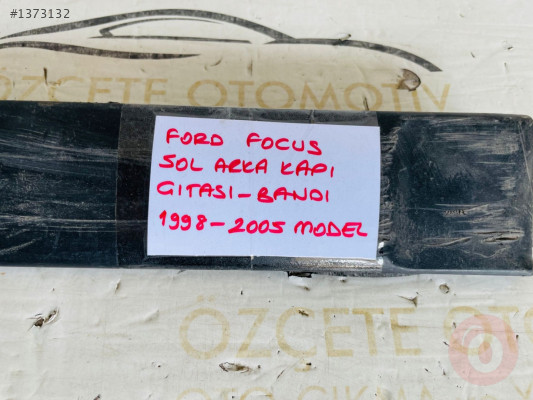 #1373132
ÖZÇETE OTOMOTİV
FORD FOCUS
SOL ARKA KAPI
GITASI-BANDI
1998-2005 MODEL
ÖZÇETE OTO